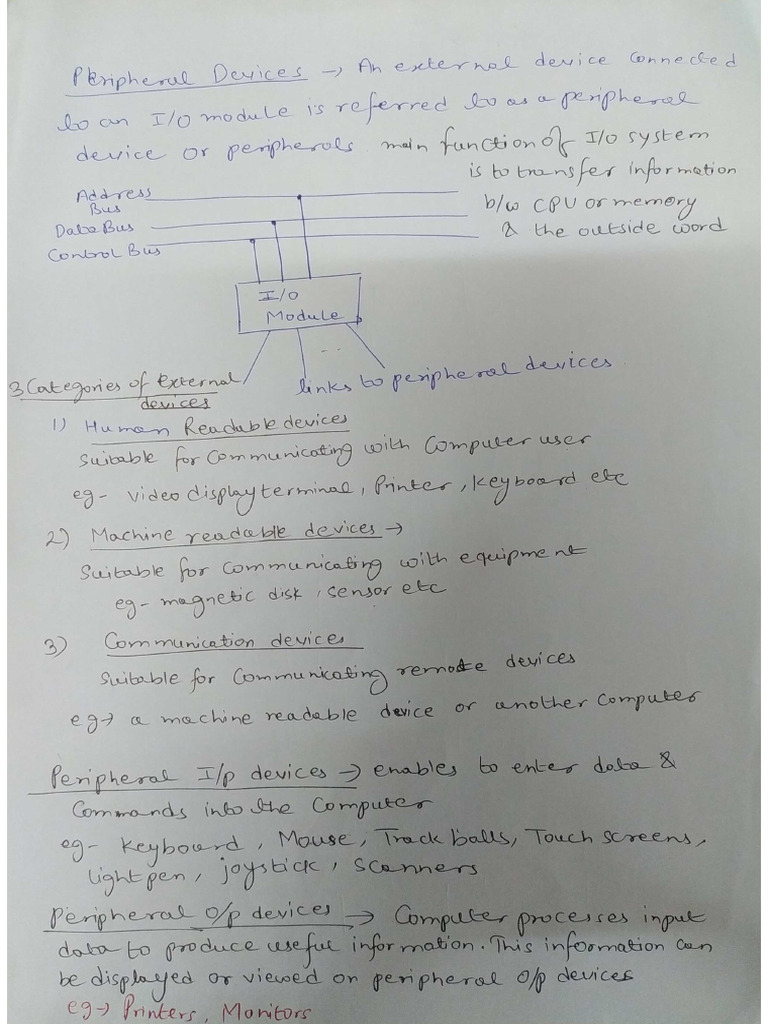 Peripheral Devices → An external device connected
to an I/O module is referred to as a peripheral
device or peripherals. main function of I/O system
is to transfer information
b/w CPU or memory
& the outside word
Address
Bus
Data Bus
Control Bus
I/O
Module
...
links to peripheral devices.
3 Categories of External
devices
1) Human Readable devices
Suitable for communicating with Computer user
eg- video display terminal, Printer, Keyboard etc
2) Machine readable devices →
Suitable for communicating with equipment
eg- magnetic disk, sensor etc
3) Communication devices
Suitable for Communicating remote devices
eg→ a machine readable device or another computer
Peripheral I/p devices → enables to enter data &
Commands into the Computer
eg- Keyboard, Mouse, Track balls, Touch screens,
light pen, joystick, scanners
Peripheral O/p devices → Computer processes input
data to produce useful information. This information can
be displayed or viewed on peripheral O/p devices
eg→ Printers, Monitors